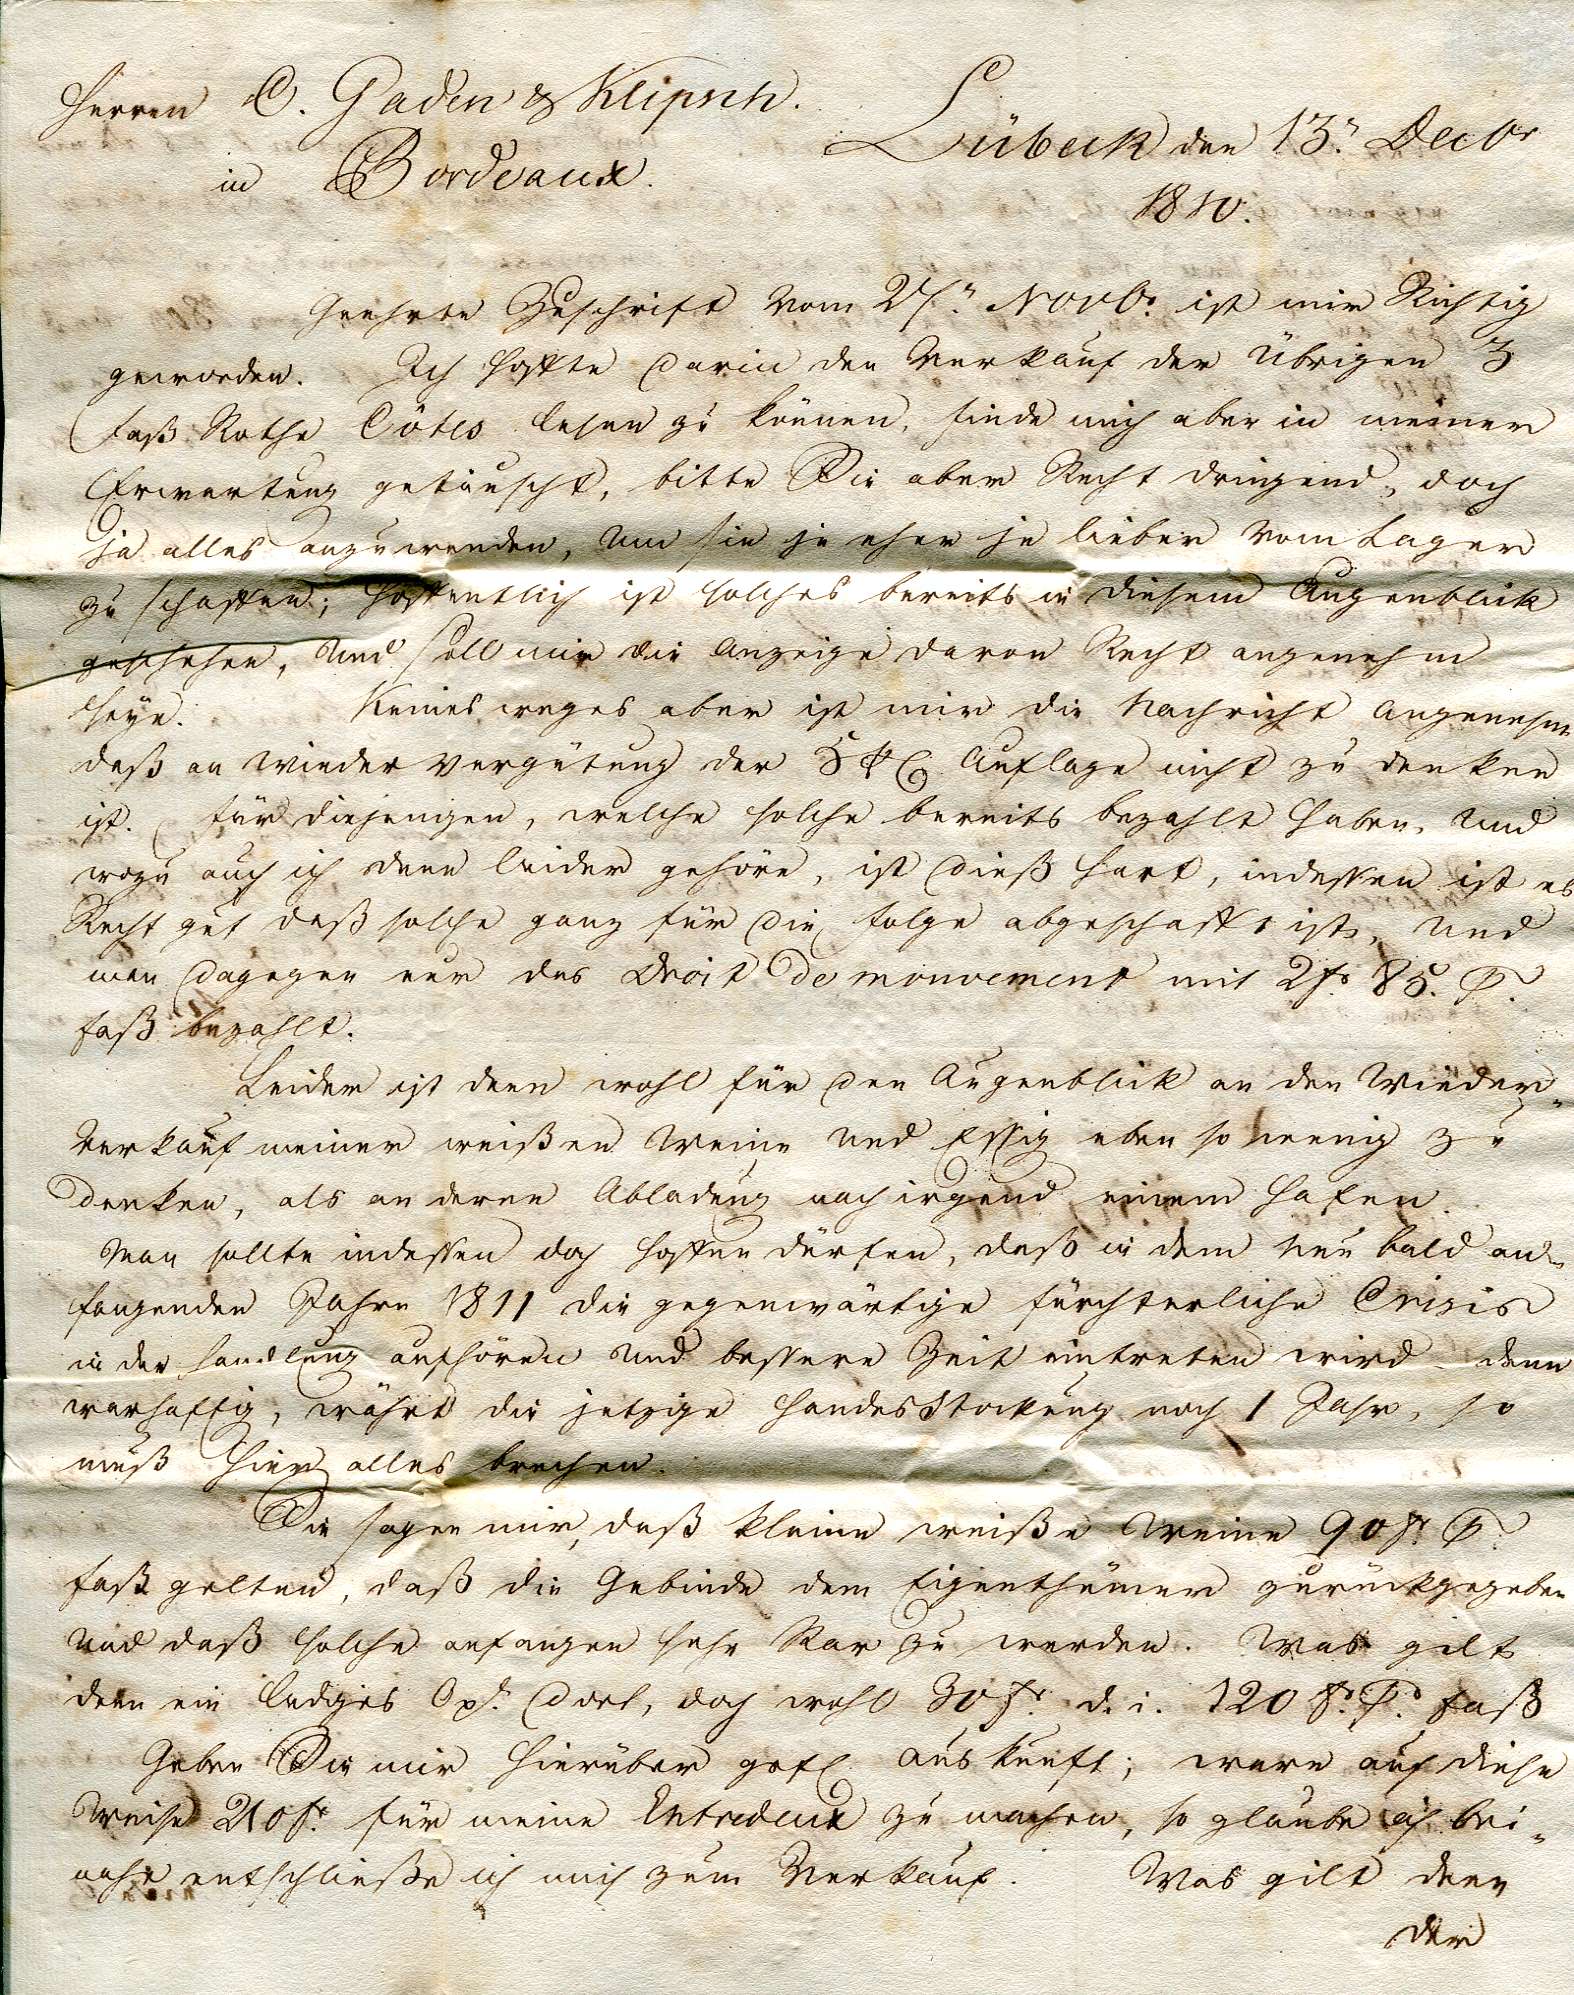 Herren C. Gaden & Klipsch.
Lübeck den 13.n Decbr
in Bordeaux.
1810.
Geehrte Zuschrift vom 27.n Novbr. ist mir Richtig
geworden. Ich hoffte darin den Verkauf der übrigen 3
Faß Rothe Côtes lesen zu können, finde mich aber in meiner
Erwartung getäuscht, bitte Sie aber Recht dringend, doch
ja alles anzuwenden, um sie je eher je lieber vom Lager
zu schaffen; hoffentlich ist solches bereits in diesem Augenblick
geschehen, und soll mir die Anzeige davon Recht angenehm
seyn. Keines weges aber ist mir die Nachricht angenehm
daß an Wieder Vergütung der Auflage nicht zu denken
ist. Für diejenigen, welche solche bereits bezahlt haben, und
wozu auch ich denn leider gehöre, ist dieß hart, indessen ist es
Recht gut daß solche ganz für die Folge abgeschafft ist, und
man dagegen nur das Droit de mouvement mit 2 fs 85. P.
Faß bezahlt.
Leider ist denn wohl für den Augenblick an den Wieder-
verkauf meiner weißen Weine und Essig eben so wenig zu
denken, als an deren Abladung nach irgend einem Hafen.
Man sollte indessen doch hoffen dürfen, daß in dem neu bald an-
fangenden Jahre 1811 die gegenwärtige fürchterliche Crisis
in der Handlung aufhören und bessere Zeit eintreten wird - denn
warhaftig, währt die jetzige HandesStockung noch 1 Jahr, so
muß hier alles brechen.
Sie sagen mir, daß kleine weiße Weine 90 fr. P.
Faß gelten, daß die Gebinde dem Eigenthümer zurückgegeben
und daß solche anfangen sehr Rar zu werden. Was gilt
denn ein ledges Oxh. dort, doch wohl 30 fr. d. i. 120 fr. P. Faß
Geben Sie mir hierüber gefl. Auskunft; wäre auf diese
Weise 210 fr. für meine Entredeux zu machen, so glaube ich bei-
nahe entschließe ich mich zum Verkauf. Was gilt denn
der